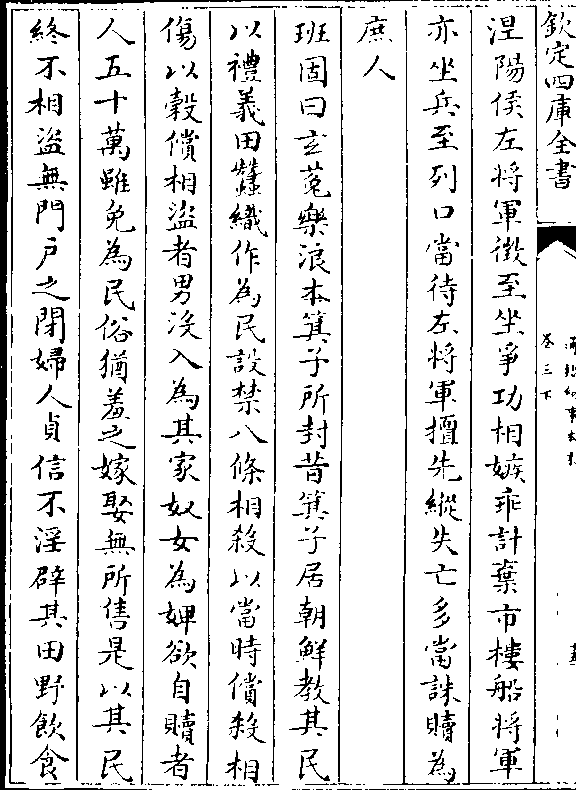 欽定四庫全書
卷三下
涅陽侯左將軍徴至坐爭功相嫉乖計棄市樓船將軍
亦坐兵至列口當待左將軍擅先縱失亡多當誅贖為
庶人
班固曰玄菟樂浪本箕子所封昔箕子居朝鮮教其民
以禮義田蠶織作為民設禁八條相殺以當時償殺相
傷以穀償相盜者男没入為其家奴女為婢欲自贖者
人五十萬雖免為民俗猶羞之嫁娶無所售是以其民
終不相盜無門戸之閉婦人貞信不淫辟其田野飲食